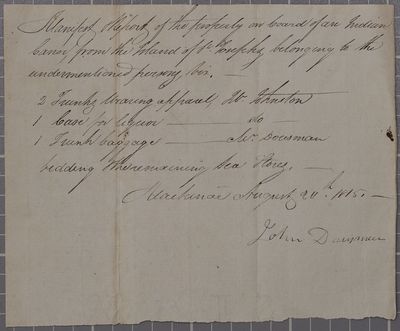 Manifest & Report of the property on board of an Indian
Canoe from the Island of St. Josephs, belonging to the
undermentioned persons, viz. —
2 Trunks Wearing apparel, Wm Johnston
1 Case for liquor — do —
1 Trunk baggage — Mr. Dousman
bedding & the remaining Sea Stores, —
Mackinac August 20th 1815. —
John Dousman